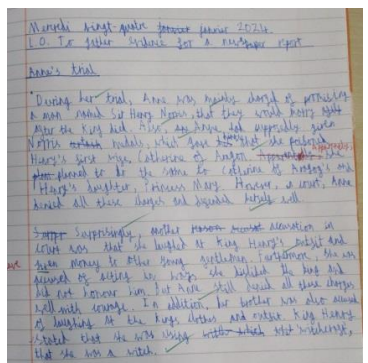 Mercredi vingt-quatre janvier 2024
L.O. To gather evidence for a newspaper report
Anne's trial
During her trial, Anne was mainly charged of promising
a man named Sir Henry Norris, that they would marry
after the King died. Also, Anne had supposedly given
Norris medals, which gave that she poisoned
Henry's first wife, Catherine of Aragon. Apparently, she
planned to do the same to Catherine of Aragon's and
Henry's daughter, Princess Mary. However, in court, Anne
denied all these charges and defended herself well.
Surprisingly, another accusation in
court was that she laughed at King Henry's outfit and
gave money to other young gentlemen. Furthermore, she was
accused of acting in ways she disliked the king and
did not honour him, but Anne still denied all these charges
well with courage. In addition, her brother was also accused
of laughing at the Kings clothes and outfit. King Henry
stated that she was using witchcraft,
that she was a witch.